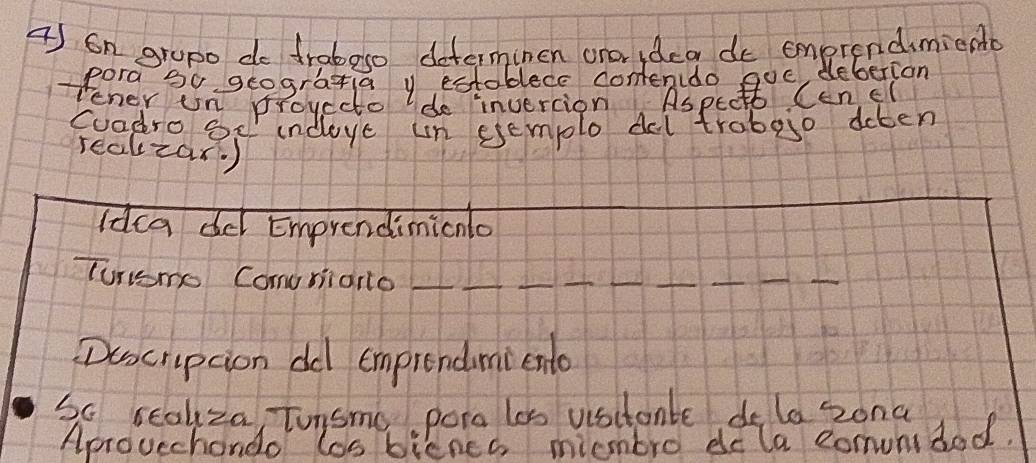 4) En grupo de trabajo determinen una idea de emprendimiento
para su geografía y establece contenido que deberian
tener un proyecto de invercion Aspecto (en el
Cuadro se incluye un ejemplo del trabajo deben
realizar.)
Idea del Emprendimiento
Turismo Comuniario _ _ _ _ _ _ _ _ _
Descripcion del emprendimiento
• Se realiza, Turismo, para los visitante de la zona
Aprovechando los bienes miembro de la comunidad.